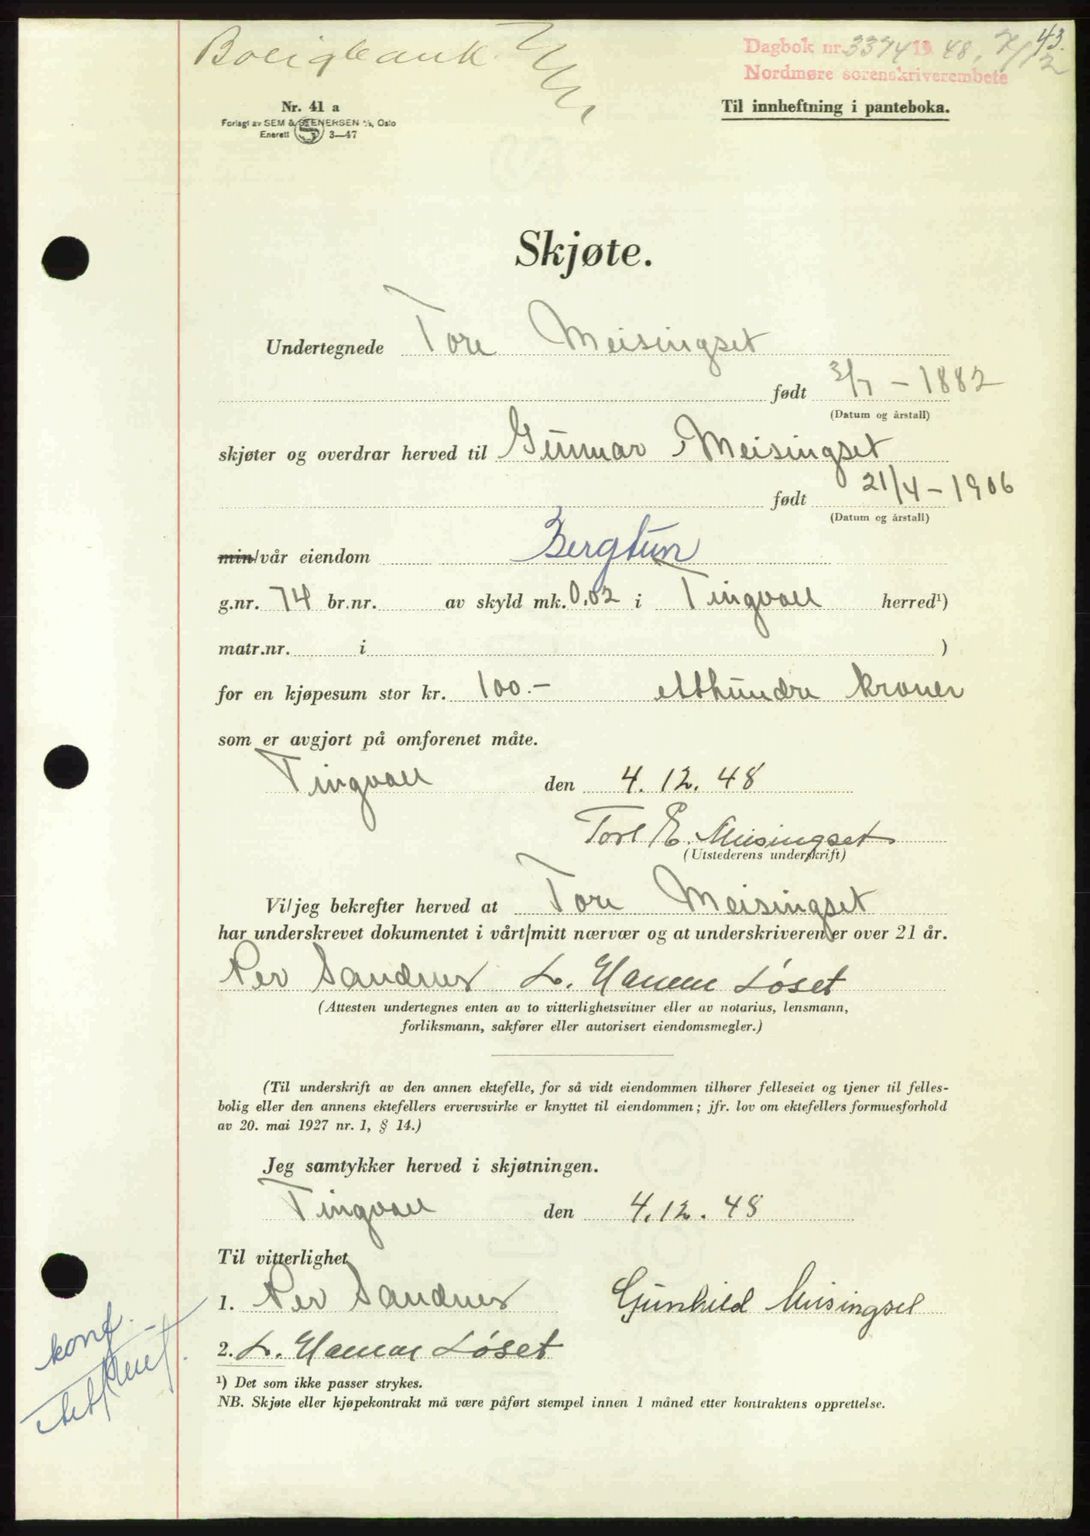 Boligbank
Dagbok nr. 3374 19 48, 7/12
43.
Nordmøre sorenskriverembete
Nr. 41 a
Forlagt av SEM & STENERSEN A/S, Oslo
Enerett S 3—47
Til innheftning i panteboka.
Skjøte.
Undertegnede Tore Meisingset
født 3/7 - 1882
(Datum og årstall)
skjøter og overdrar herved til Gunnar Meisingset
født 21/4 - 1906
(Datum og årstall)
min/vår eiendom Bergtun
g.nr. 74 br.nr. av skyld mk. 0,02 i Tingvoll herred¹)
matr.nr. i )
for en kjøpesum stor kr. 100.- etthundre kroner
som er avgjort på omforenet måte.
Tingvoll den 4.12.48
Tore E. Meisingset
(Utstederens underskrift)
Vi/jeg bekrefter herved at Tore Meisingset
har underskrevet dokumentet i vårt/mitt nærvær og at underskriveren er over 21 år.
Per Sandnes L. Løset
(Attesten undertegnes enten av to vitterlighetsvitner eller av notarius, lensmann,
forliksmann, sakfører eller autorisert eiendomsmegler.)
(Til underskrift av den annen ektefelle, for så vidt eiendommen tilhører felleseiet og tjener til felles-
bolig eller den annens ektefellers ervervsvirke er knyttet til eiendommen; jfr. lov om ektefellers formuesforhold
av 20. mai 1927 nr. 1, § 14.)
Jeg samtykker herved i skjøtningen.
Tingvoll den 4.12.48
Til vitterlighet
1. Per Sandnes Gunhild Meisingset
2. L. Løset
konf.
¹) Det som ikke passer strykes.
NB. Skjøte eller kjøpekontrakt må være påført stempel innen 1 måned etter kontraktens opprettelse.